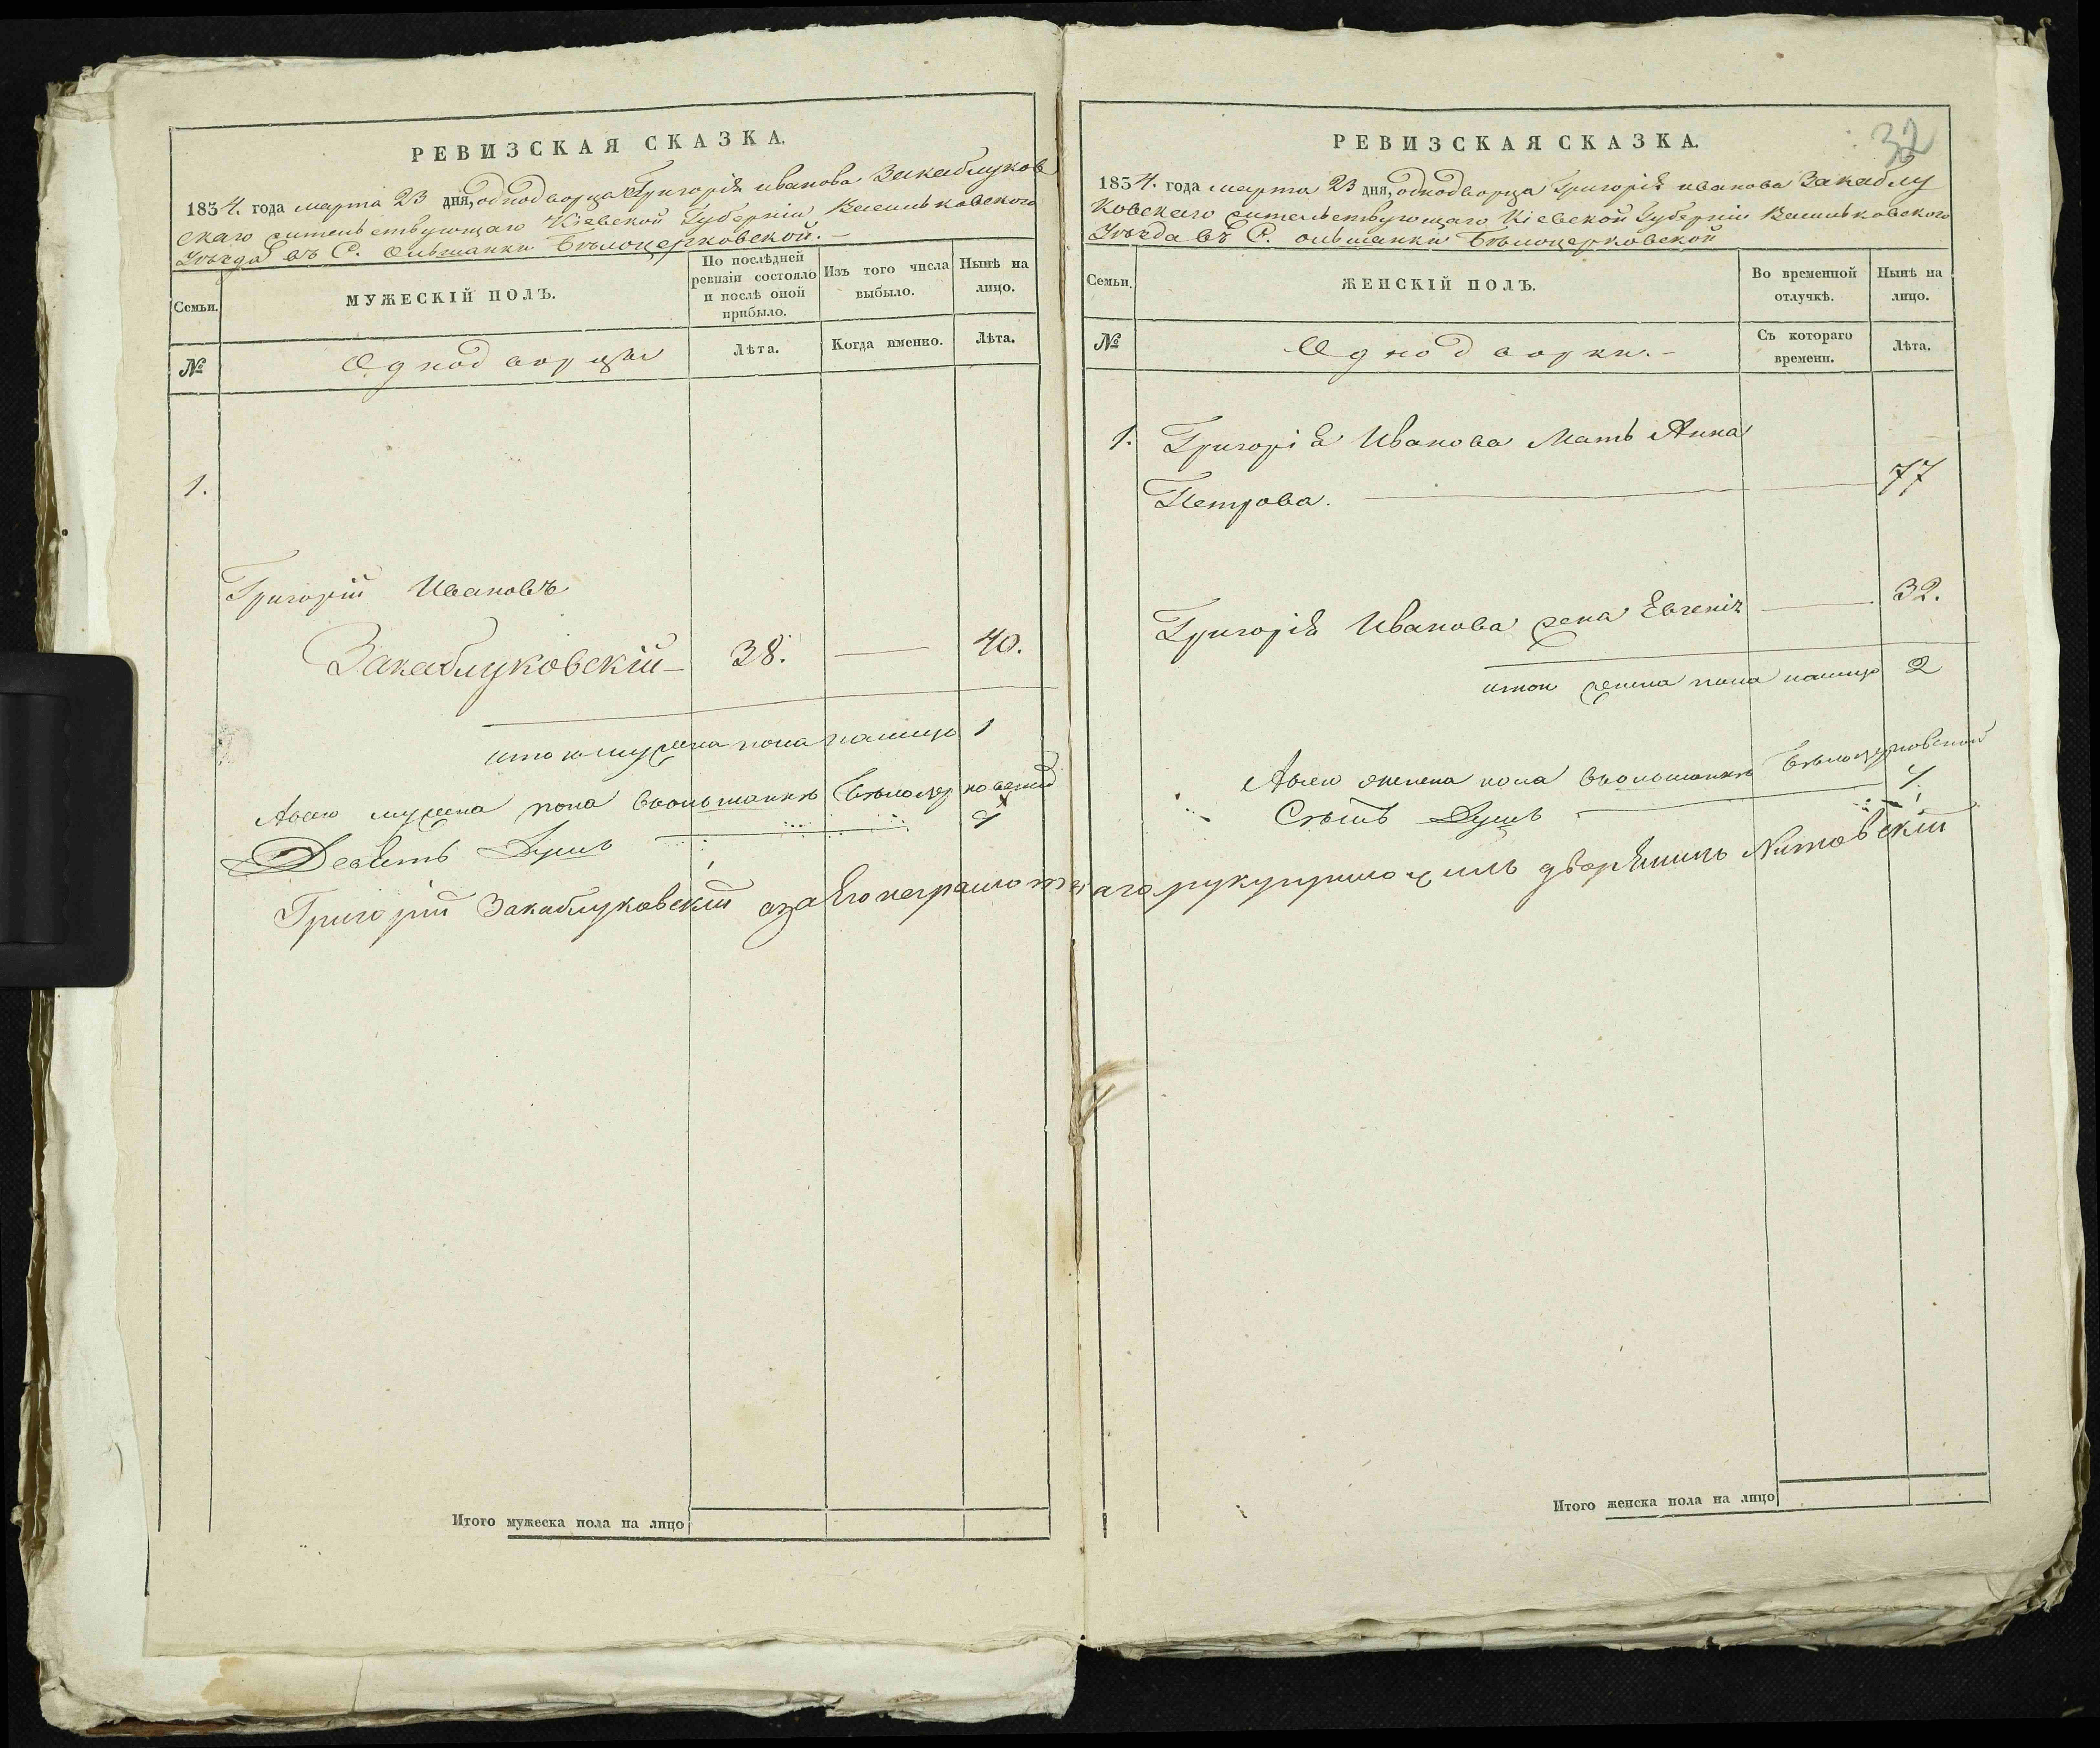 РЕВИЗСКАЯ СКАЗКА.
1854. года марта 23 дня, однодворца Григорія иванова Закаблуков
скаго жительствующаго Кіевской Губерніи Васильковского
Уѣзда въ С. Ольшанки Бѣлоцерковской. –
Семьи.
МУЖЕСКІЙ ПОЛЪ.
По послѣдней
ревизіи состояло
и послѣ оной
прибыло.
Изъ того числа
выбыло.
Нынѣ на
лицо.
№
Однодворцы
Лѣта.
Когда именно.
Лѣта.
1.
Григорій Ивановъ
Закаблуковскій – 38. — 40.
итого мужеска пола налицо 1
Авсего мужеска пола вольшанкѣ Бѣлоцерковской
Девять Душъ 9
РЕВИЗСКАЯ СКАЗКА.
32
1854. года марта 23 дня, однодворца Григорія иванова Закаблу
ковскаго жительствующаго Кіевской Губерніи Васильковского
Уѣзда въ С. ольшанки Бѣлоцерковской
Семьи.
ЖЕНСКІЙ ПОЛЪ.
Во временной
отлучкѣ.
Нынѣ на
лицо.
№
Однодворки. –
Съ котораго
времени.
Лѣта.
1. Григорія Иванова Мать Анна
Петрова. — 77
Григорія Иванова жена Евгенія — 32.
итого женска пола налицо 2
Авсего женска пола вольшанкѣ Бѣлоцерковской
Семь Душъ 7
Григорій Закаблуковскій азаЕго неграмотнаго рукуприложилъ дворянинъ
Итого мужеска пола на лицо
Итого женска пола на лицо